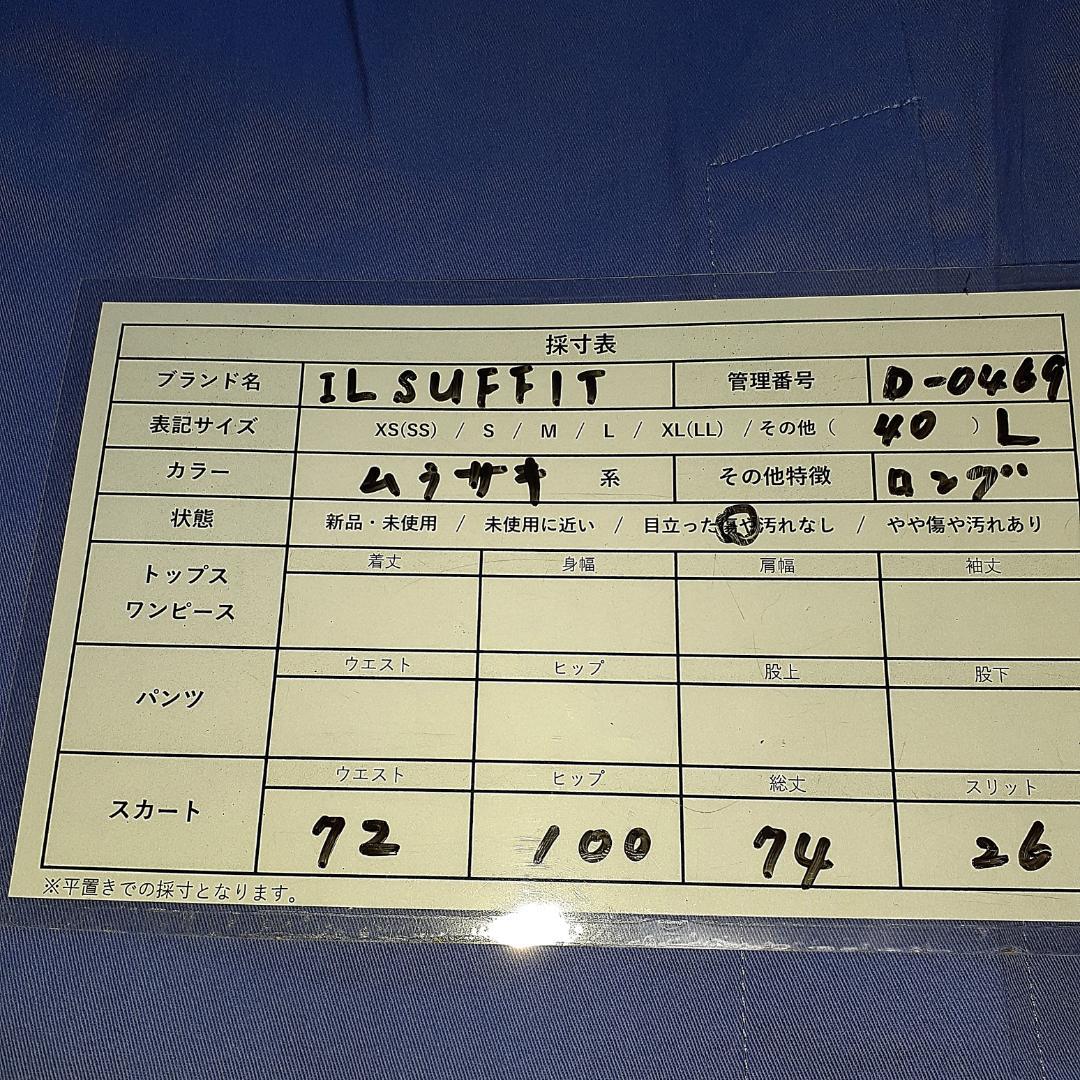 採寸表
ブランド名 ILSUFFIT 管理番号 D-0469
表記サイズ XS(SS) / S / M / L / XL(LL) / その他 ( 40 ) L
カラー ムラサキ 系 その他特徴 ロング
状態 新品・未使用 / 未使用に近い / 目立った傷や汚れなし / やや傷や汚れあり
着丈 身幅 肩幅 袖丈
トップス
ワンピース
ウエスト ヒップ 股上 股下
パンツ
ウエスト ヒップ 総丈 スリット
スカート 72 100 74 26
※平置きでの採寸となります。